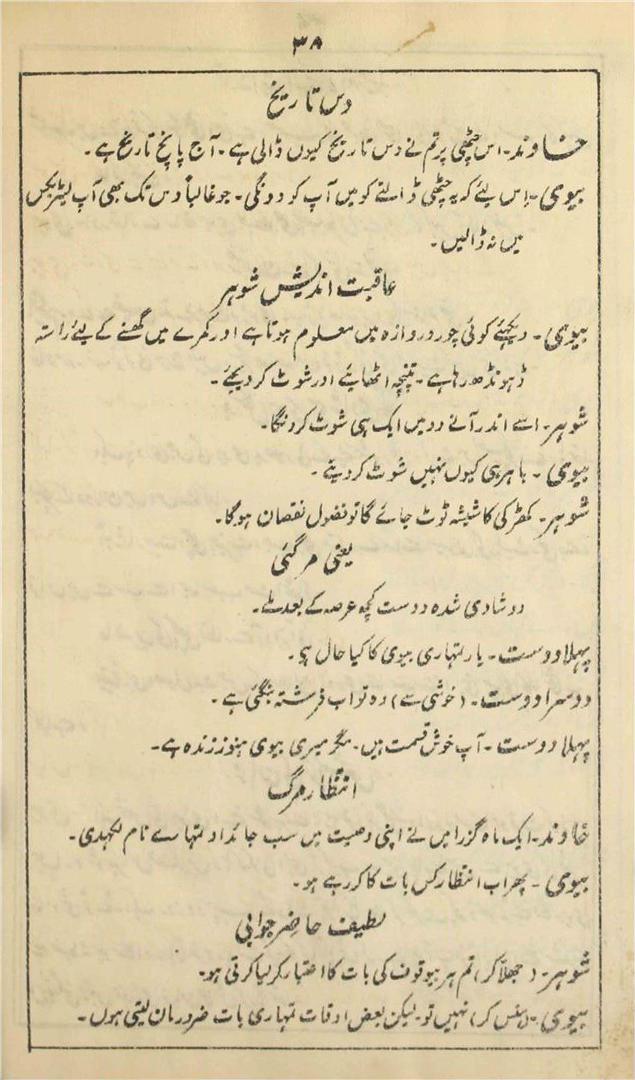 ۳۸
دس تاریخ
خاوند۔ اس چٹھی پر تم نے دس تاریخ کیوں ڈالی ہے۔ آج پانچ تاریخ ہے۔
بیوی۔ اس لئے کہ یہ چٹھی ڈالنے کو میں آپ کو دونگی۔ جو غالباً دس تک بھی آپ لیٹر بکس
میں نہ ڈالیں۔
عاقبت اندیش شوہر
بیوی۔ دیکھئے کوئی چور دروازہ میں معلوم ہوتا ہے اور کمرے میں گھسنے کے لیئے راستہ
ڈہونڈھ رہا ہے۔ تپنچہ اٹھایئے اور شوٹ کر دیجئے۔
شوہر۔ اسے اندر آنے دو میں ایک ہی شوٹ کردنگا۔
بیوی۔ باہر ہی کیوں نہیں شوٹ کر دیتے۔
شوہر۔ کھڑکی کا شیشہ ٹوٹ جائے گا تو فضول نقصان ہوگا۔
یعنی مر گئی
دو شادی شدہ دوست کچھ عرصہ کے بعد ملے۔
پہلا دوست۔ یار تمہاری بیوی کا کیا حال ہے۔
دوسرا دوست۔ (خوشی سے) وہ تو اب فرشتہ بنگئی ہے۔
پہلا دوست۔ آپ خوش قسمت ہیں۔ مگر میری بیوی ہنوز زندہ ہے۔
انتظار مرگ
خاوند۔ ایک ماہ گزرا میں نے اپنی وصیت میں سب جائداد تمہارے نام لکھدی۔
بیوی۔ پھر اب انتظار کس بات کا کر رہے ہو۔
لطیف حاضر جوابی
شوہر۔ (جھلا کر) تم ہر بیوقوف کی بات کا اعتبار کر لیا کرتی ہو۔
بیوی۔ (ہنس کر) نہیں تو۔ لیکن بعض اوقات تمہاری بات ضرور مان لیتی ہوں۔